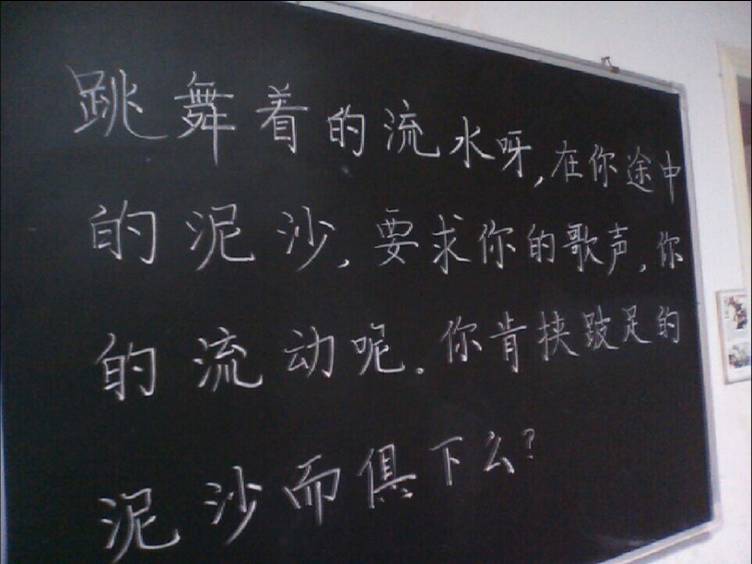 跳舞着的流水呀,在你途中
的泥沙,要求你的歌声,你
的流动呢。你肯挟跂足的
泥沙而俱下么?